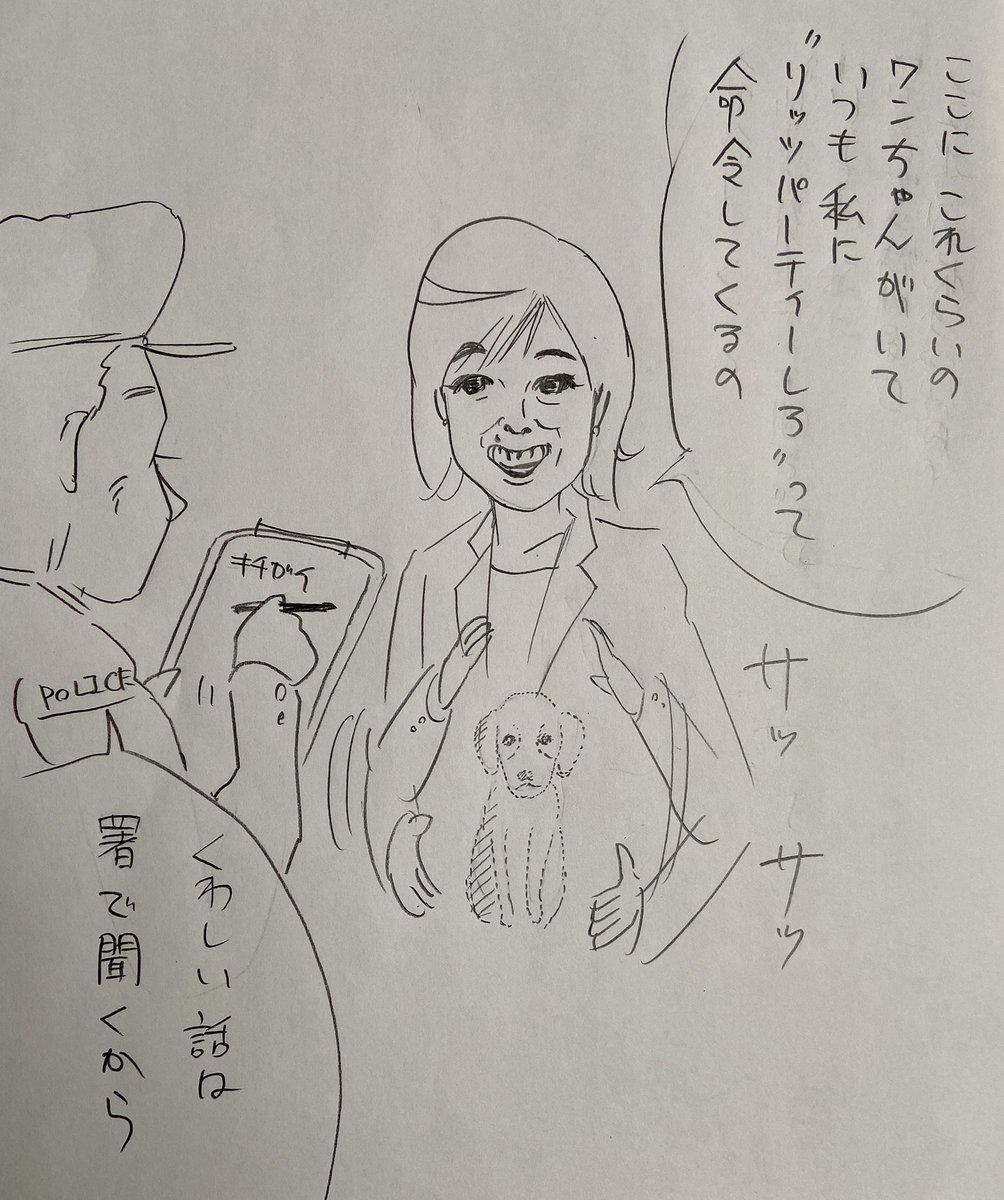 ここに これくらいの
ワンちゃんがいて
いつも 私に
"リッツパーティーしろ"って
命令してくるの
キチガイ
POLICE
サッ
サッ
くわしい話は
署で聞くから